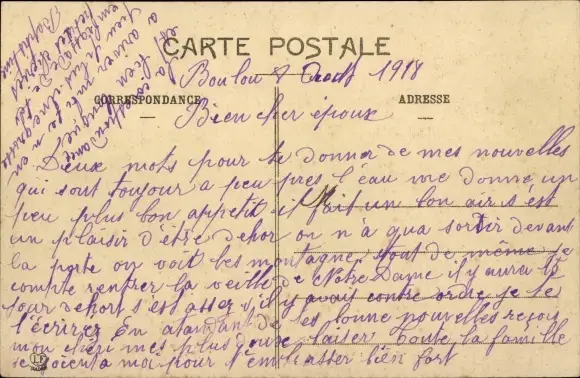 CARTE POSTALE
Boulou Août 1918
CORRESPONDANCE
ADRESSE
Bien cher époux
Deux mots pour te donner de mes nouvelles
qui sont toujour a peu pres l'eau me donne un
peu plus bon appetit il fait un bon air s'est
un plaisir d'être dehor on n'a qua sortir devant
la porte on voit les montagne tout de même je
compte rentrer la veille de Notre Dame il y aura 18
jour dehort s'est assez s'il y avait contre ordre je te
l'écrirez En atandant de tes bonne nouvelles reçois
mon chéri mes plus doux baiser Toute la famille
se joient a moi pour t'embrasser bien fort
la correspondance
est bien longue
a arriver